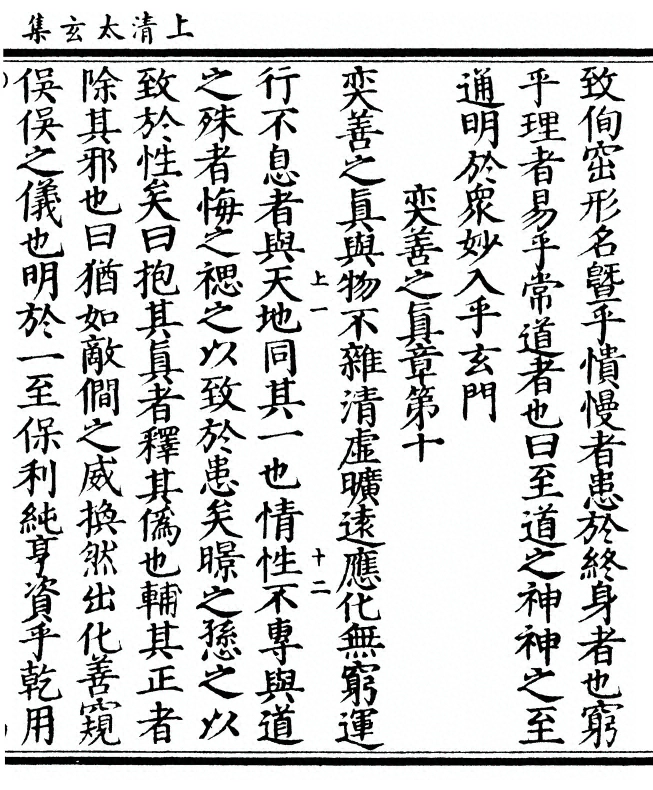 上清太玄集
致侚窋形名曁乎憒慢者患於終身者也窮
乎理者易乎常道者也曰至道之神神之至
通明於衆妙入乎玄門
奕善之眞章第十
奕善之眞與物不雜清虛曠遠應化無窮運
上一
十二
行不息者與天地同其一也情性不專與道
之殊者悔之禗之以致於患矣暻之愻之以
致於性矣曰抱其眞者釋其僞也輔其正者
除其邪也曰猶如敵僩之威換然出化善窺
俁俁之儀也明於一至保利純亨資乎乾用